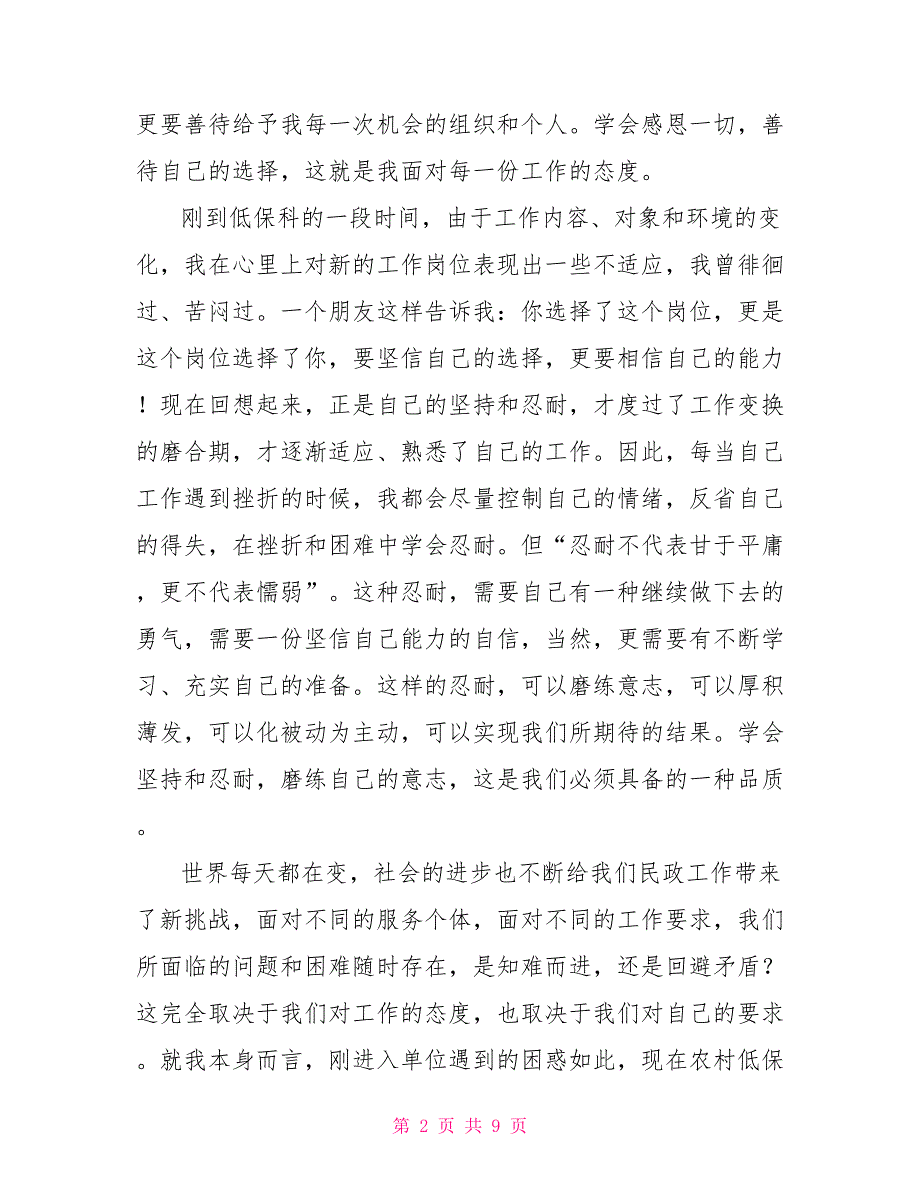 更要善待给予我每一次机会的组织和个人。学会感恩一切，善
待自己的选择，这就是我面对每一份工作的态度。
刚到低保科的一段时间，由于工作内容、对象和环境的变
化，我在心里上对新的工作岗位表现出一些不适应，我曾徘徊
过、苦闷过。一个朋友这样告诉我：你选择了这个岗位，更是
这个岗位选择了你，要坚信自己的选择，更要相信自己的能力
！现在回想起来，正是自己的坚持和忍耐，才度过了工作变换
的磨合期，才逐渐适应、熟悉了自己的工作。因此，每当自己
工作遇到挫折的时候，我都会尽量控制自己的情绪，反省自己
的得失，在挫折和困难中学会忍耐。但“忍耐不代表甘于平庸
，更不代表懦弱”。这种忍耐，需要自己有一种继续做下去的
勇气，需要一份坚信自己能力的自信，当然，更需要有不断学
习、充实自己的准备。这样的忍耐，可以磨练意志，可以厚积
薄发，可以化被动为主动，可以实现我们所期待的结果。学会
坚持和忍耐，磨练自己的意志，这是我们必须具备的一种品质
。
世界每天都在变，社会的进步也不断给我们民政工作带来
了新挑战，面对不同的服务个体，面对不同的工作要求，我们
所面临的问题和困难随时存在，是知难而进，还是回避矛盾？
这完全取决于我们对工作的态度，也取决于我们对自己的要求
。就我本身而言，刚进入单位遇到的困惑如此，现在农村低保
第 2 页 共 9 页